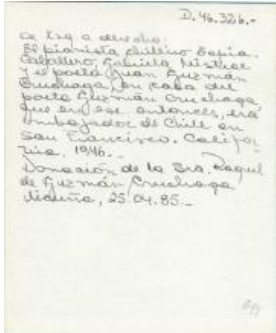 D. 46.326.-
de Izq a derecho:
El pianista chileno Tapia.
Caballero, Gabriela Mistral
y el poeta Juan Guzmán
Cruchaga, en casa del
poeta Guzmán Cruchaga,
que en ese entonces, era
embajador de Chile en
San Francisco. Califor
nia, 1946.-
Donación de la Sra. Raquel
de Guzmán Cruchaga
Vicuña, 25.04.85.-